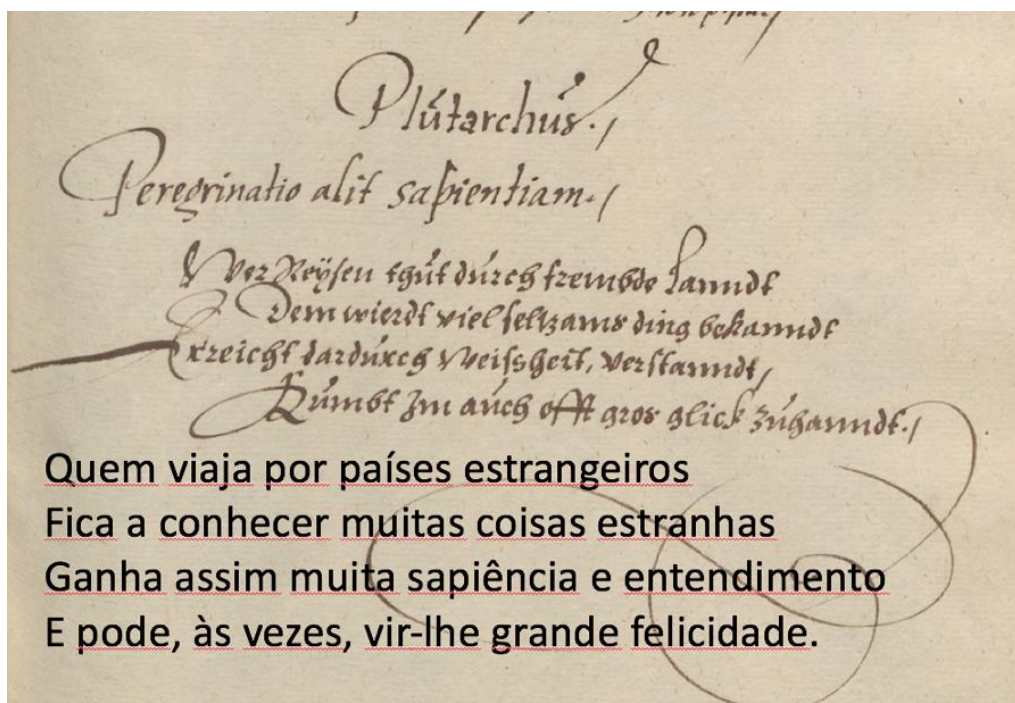 Plútarchús./
Peregrinatio alit sapientiam./
Wer Reÿsen thút dúrch frembde Lanndt
Dem wierdt viel seltzams ding bekanndt
Erreicht dardúrch Weissheit, verstanndt,
Kúmbt Im aúch offt gros glick zúhanndt./
Quem viaja por países estrangeiros
Fica a conhecer muitas coisas estranhas
Ganha assim muita sapiência e entendimento
E pode, às vezes, vir-lhe grande felicidade.